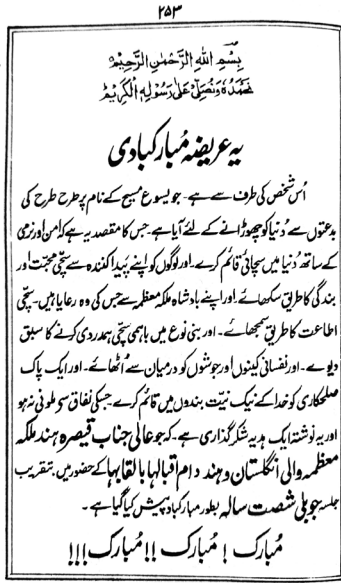 ۲۵۳
بِسْمِ اللهِ الرَّحْمٰنِ الرَّحِیْمِ
نَحْمَدُہٗ وَنُصَلِّیْ عَلٰی رَسُوْلِہِ الْکَرِیْمِ
یہ عریضہ مُبارکبادی
اُس شخص کی طرف سے ہے۔ جو یسوع مسیح کے نام پر طرح طرح کی
بدعتوں سے دُنیا کو چھوڑانے کے لئے آیا ہے۔ جس کا مقصد یہ ہے کہ امن اور نرمی
کے ساتھ دُنیا میں سچائی قائم کرے۔ اور لوگوں کو اپنے پیدا کنندہ سے سچی محبت اور
بندگی کا طریق سکھائے۔ اور اپنے بادشاہ ملکہ معظمہ سے جس کی وہ رعایا ہیں۔ سچی
اطاعت کا طریق سمجھائے۔ اور بنی نوع میں باہمی سچی ہمدردی کرنے کا سبق
دیوے۔ اور نفسانی کینوں اور جوشوں کو درمیان سے اُٹھائے۔ اور ایک پاک
صلحکاری کو خدا کے نیک نیت بندوں میں قائم کرے جسکی نفاق سے ملونی نہ ہو
اور یہ نوشتہ ایک ہدیہ شکر گذاری ہے۔ کہ جو عالی جناب قیصرہ ہند ملکہ
معظمہ والی انگلستان و ہند دام اقبالہا بالقابہا کے حضور میں بتقریب
جلسہ جوبلی شصت سالہ بطور مبارکباد پیش کیا گیا ہے۔
مُبارک ! مُبارک !! مُبارک !!!